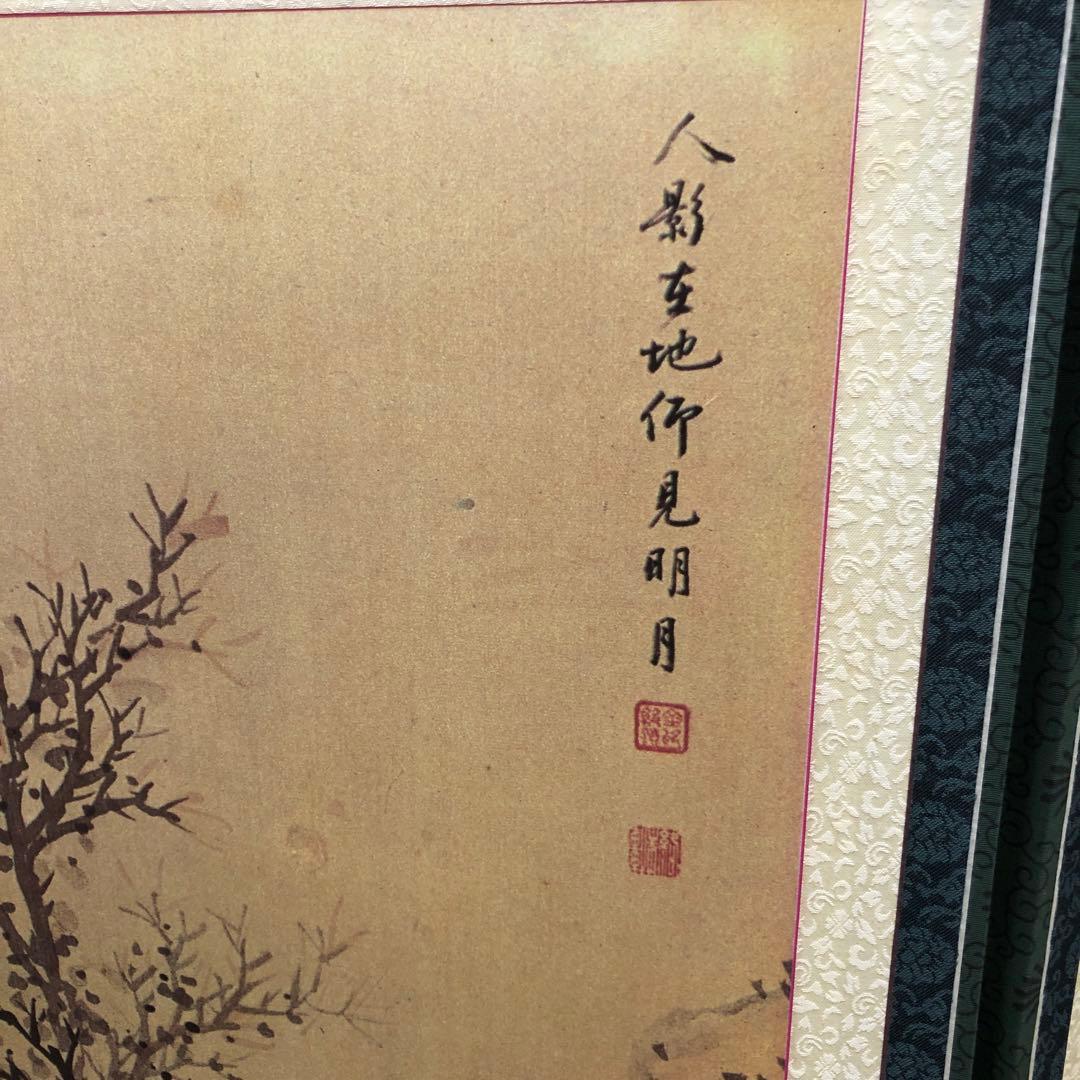 人影在地仰見明月